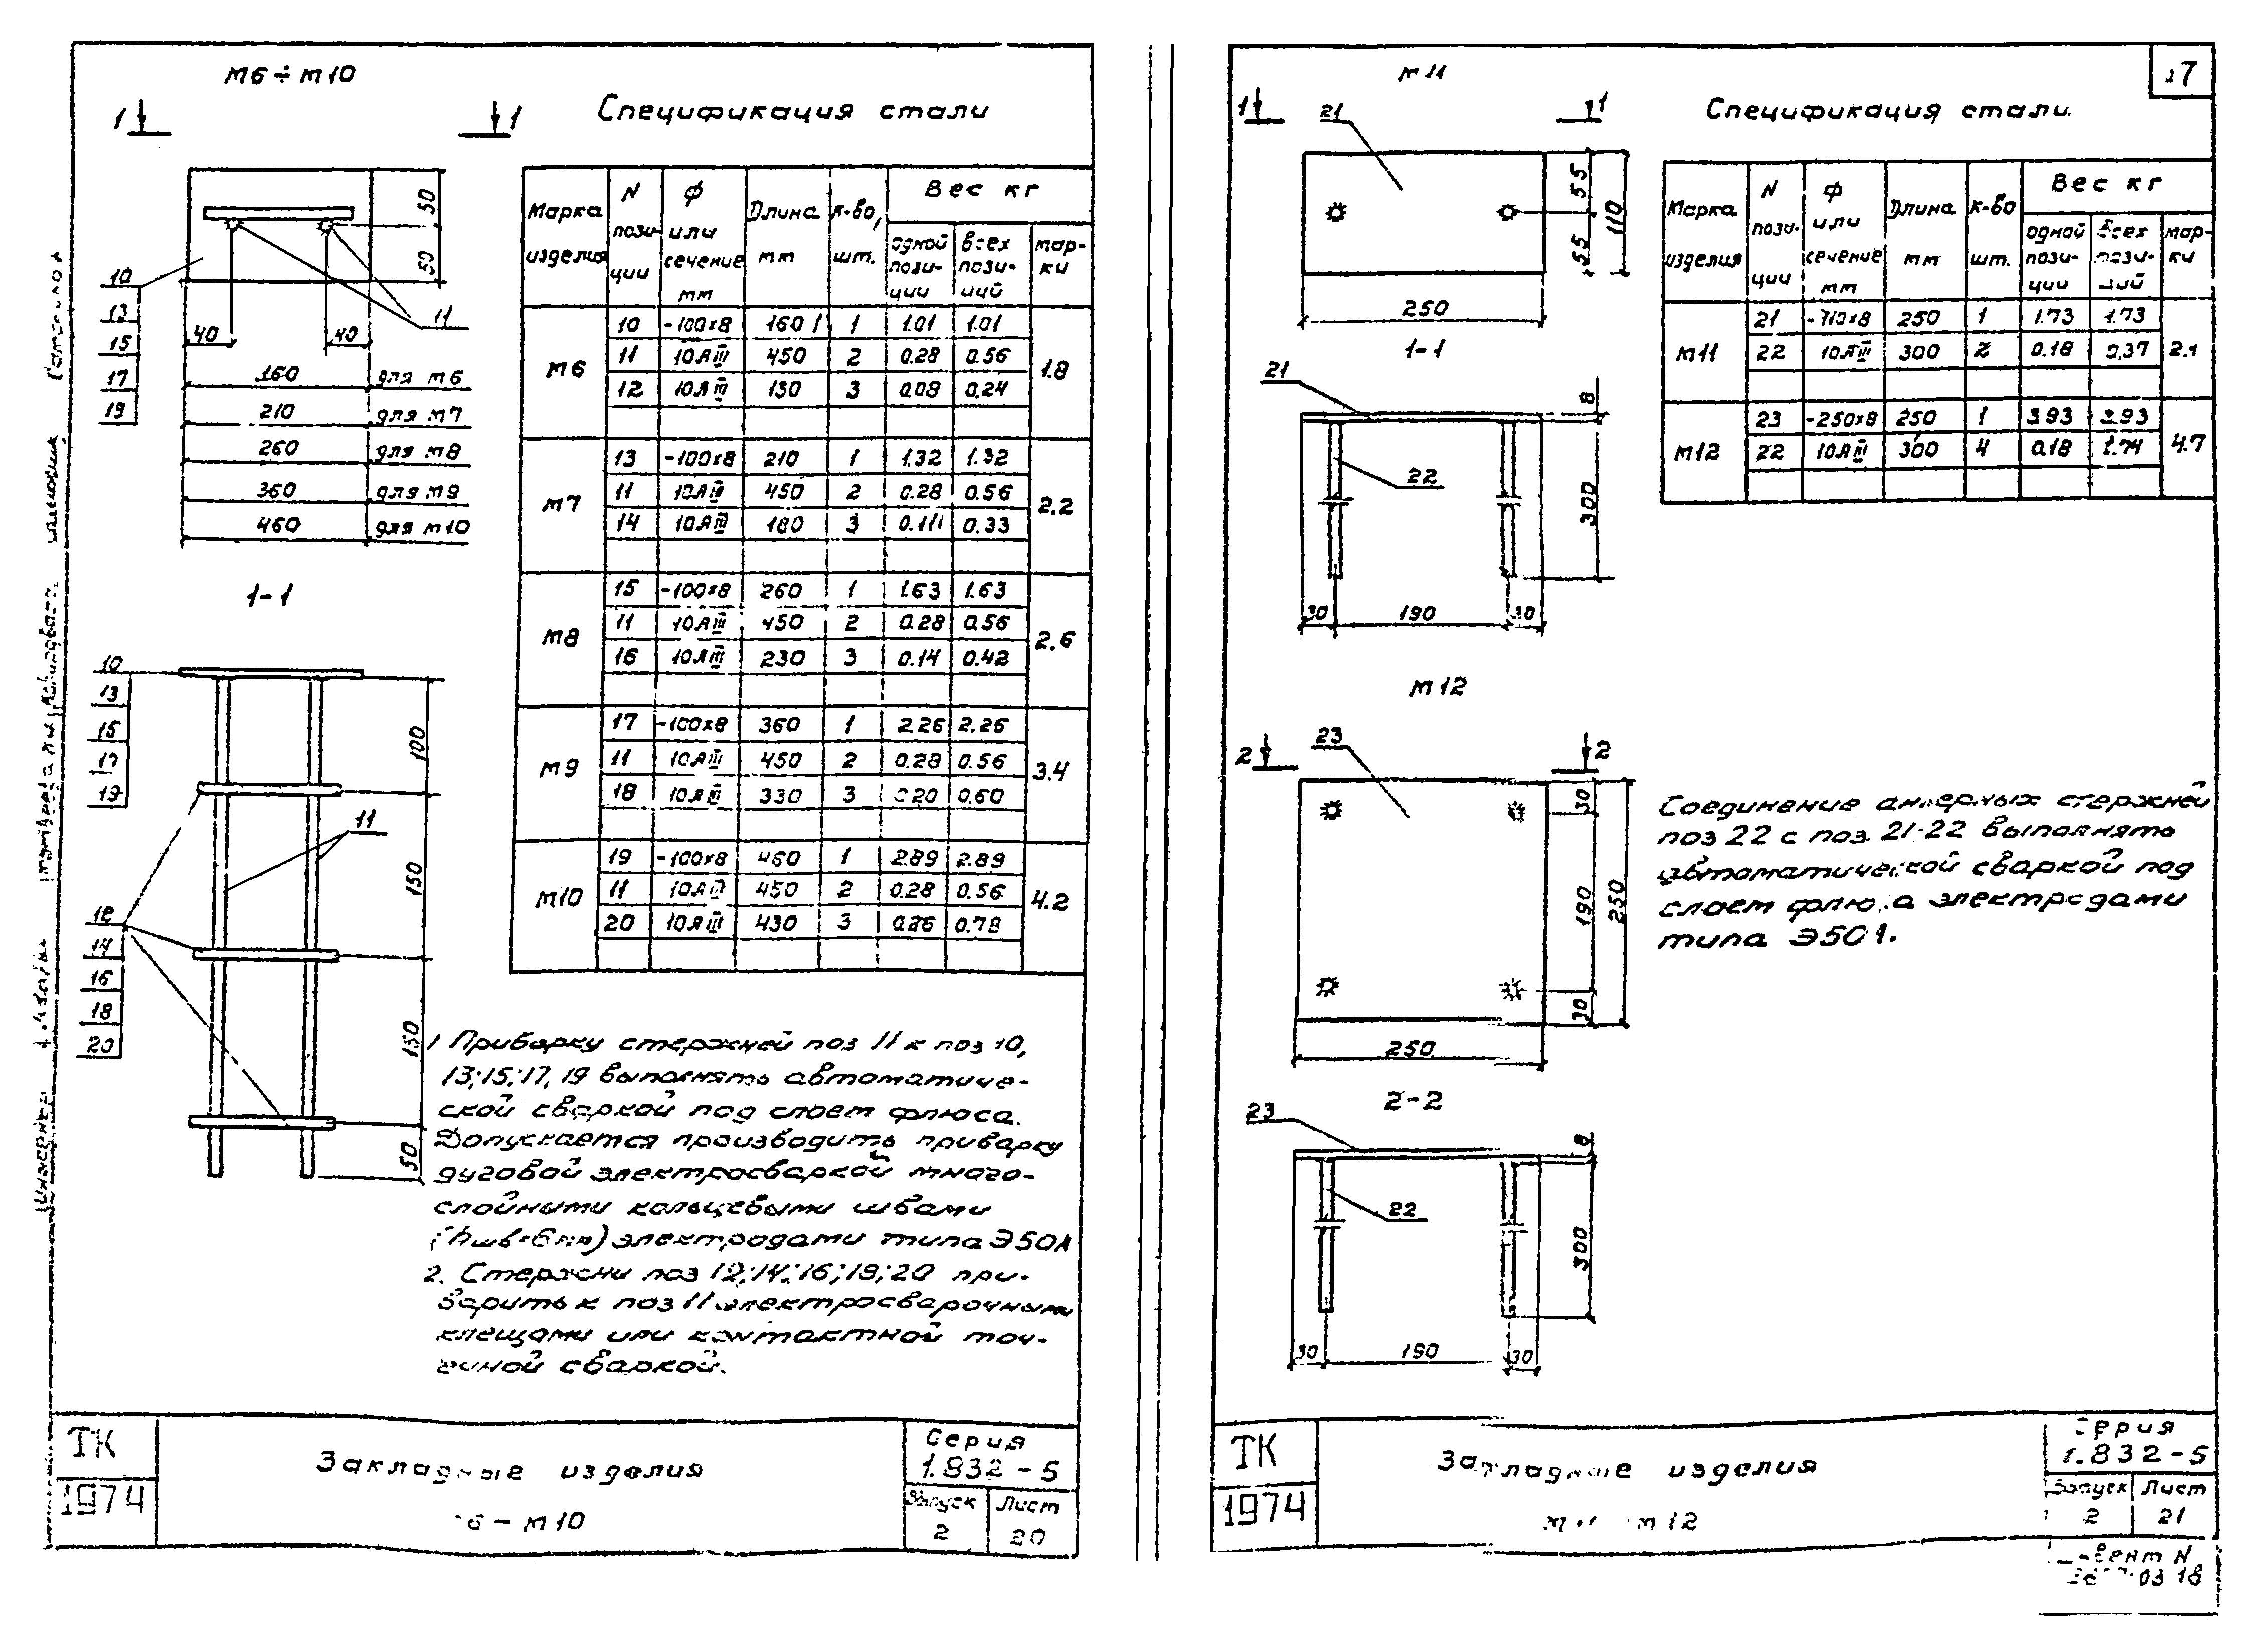 М6 ÷ М10
1 1
Спецификация стали
Марка изделия | N позиции | Ф или сечение мм | Длина мм | К-во, шт. | Вес кг
одной позиции | всех позиций | марки
М6 | 10 | -100×8 | 160 | 1 | 1.01 | 1.01 | 1.8
11 | 10АIII | 450 | 2 | 0.28 | 0.56
12 | 10АIII | 130 | 3 | 0.08 | 0.24
М7 | 13 | -100×8 | 210 | 1 | 1.32 | 1.32 | 2.2
11 | 10АIII | 450 | 2 | 0.28 | 0.56
14 | 10АIII | 180 | 3 | 0.111 | 0.33
М8 | 15 | -100×8 | 260 | 1 | 1.63 | 1.63 | 2.6
11 | 10АIII | 450 | 2 | 0.28 | 0.56
16 | 10АIII | 230 | 3 | 0.14 | 0.42
М9 | 17 | -100×8 | 360 | 1 | 2.26 | 2.26 | 3.4
11 | 10АIII | 450 | 2 | 0.28 | 0.56
18 | 10АIII | 330 | 3 | 0.20 | 0.60
М10 | 19 | -100×8 | 460 | 1 | 2.89 | 2.89 | 4.2
11 | 10АIII | 450 | 2 | 0.28 | 0.56
20 | 10АIII | 430 | 3 | 0.26 | 0.78
50
50
10
13
15
17
19
11
40 40
160 для М6
210 для М7
260 для М8
360 для М9
460 для М10
1-1
10
13
15
17
19
11
12
14
16
18
20
100
150
150
50
1 Приварку стержней поз 11 к поз 10,
13;15;17,19 выполнять автоматиче-
ской сваркой под слоем флюса.
Допускается производить приварку
дуговой электросваркой много-
слойными кольцевыми швами
(hшв=6мм) электродами типа Э50А
2. Стержни поз 12;14;16;18;20 при-
варить к поз 11 электросварочными
клещами или контактной точ-
ечной сваркой.
ТК
1974
Закладные изделия
6 - М10
Серия
1.832-5
Выпуск Лист
2 20
17
М11
1 1
21
55
55
110
250
Спецификация стали
Марка изделия | N позиции | Ф или сечение мм | Длина мм | К-во шт. | Вес кг
одной позиции | всех позиций | марки
М11 | 21 | -710×8 | 250 | 1 | 1.73 | 1.73 | 2.1
22 | 10АIII | 300 | 2 | 0.18 | 0.37
М12 | 23 | -250×8 | 250 | 1 | 3.93 | 3.93 | 4.7
22 | 10АIII | 300 | 4 | 0.18 | 1.74
1-1
21
8
22
300
30 190 30
М12
2 2
23
30
190
30
250
250
Соединение анкерных стержней
поз 22 с поз. 21-22 выполнять
автоматической сваркой под
слоем флюса электродами
типа
2-2
23
8
22
300
30 190 30
ТК
1974
Закладные изделия
М12
Серия
1.832-5
Выпуск Лист
2 21